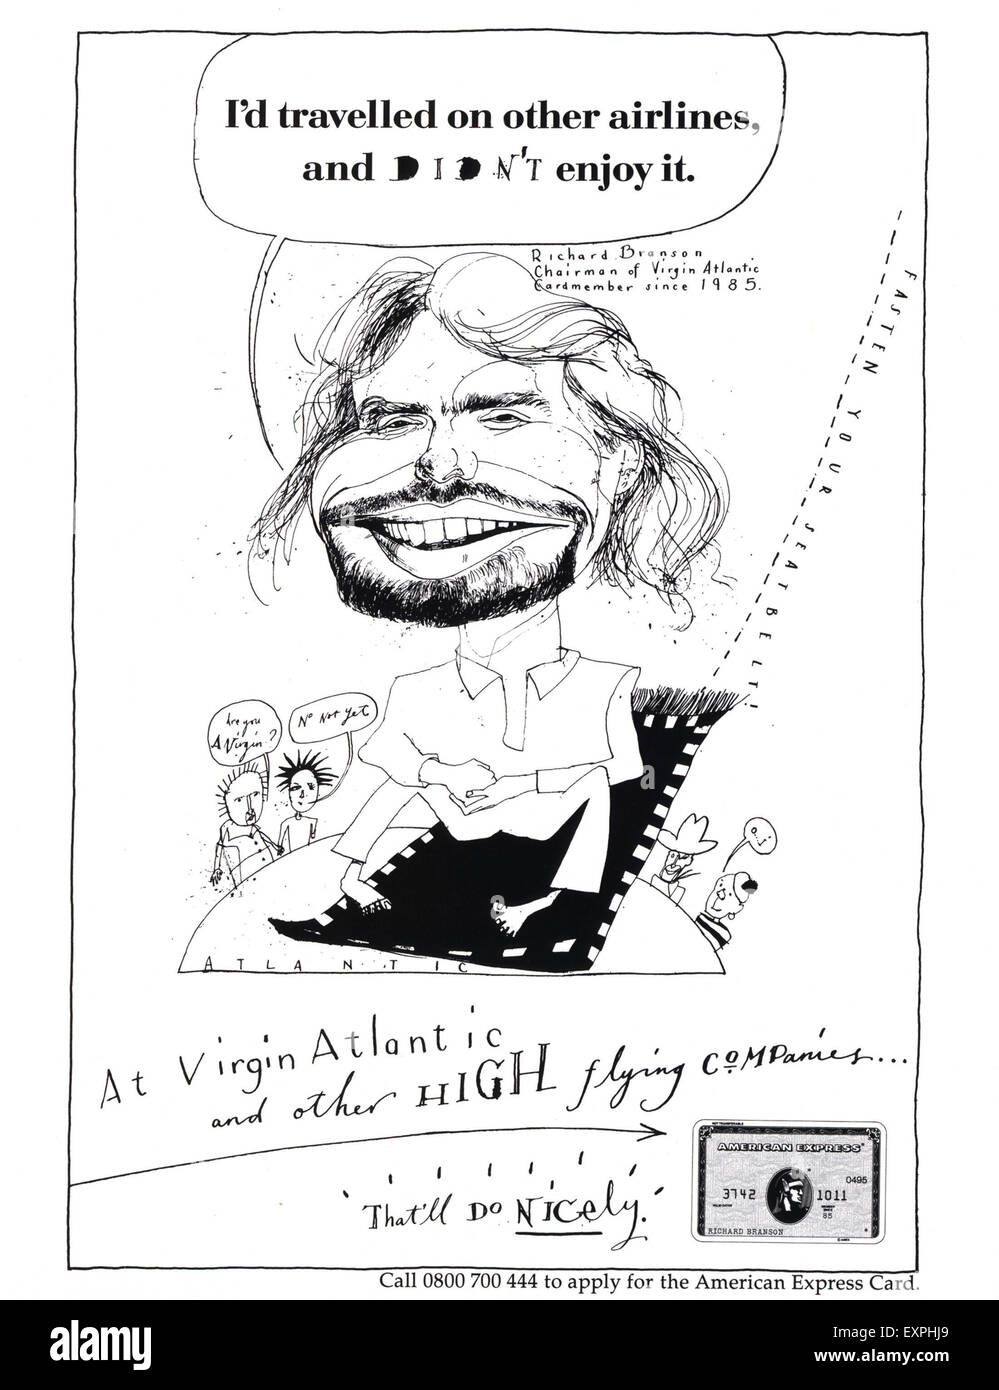 I'd travelled on other airlines,
and DIDN'T enjoy it.
Richard Branson
Chairman of Virgin Atlantic
Cardmember since 1985.
FASTEN YOUR SEAT BELT!
Are you
A Virgin?
No Not Yet
ATLANTIC
At Virgin Atlantic
and other HIGH flying COMPanies...
'That'll DO NICely.'
NOT TRANSFERABLE
AMERICAN EXPRESS
0495
3742 1011
85
RICHARD BRANSON
Call 0800 700 444 to apply for the American Express Card.
a
a
a
a
alamy
Image ID: EXPHJ9
www.alamy.com